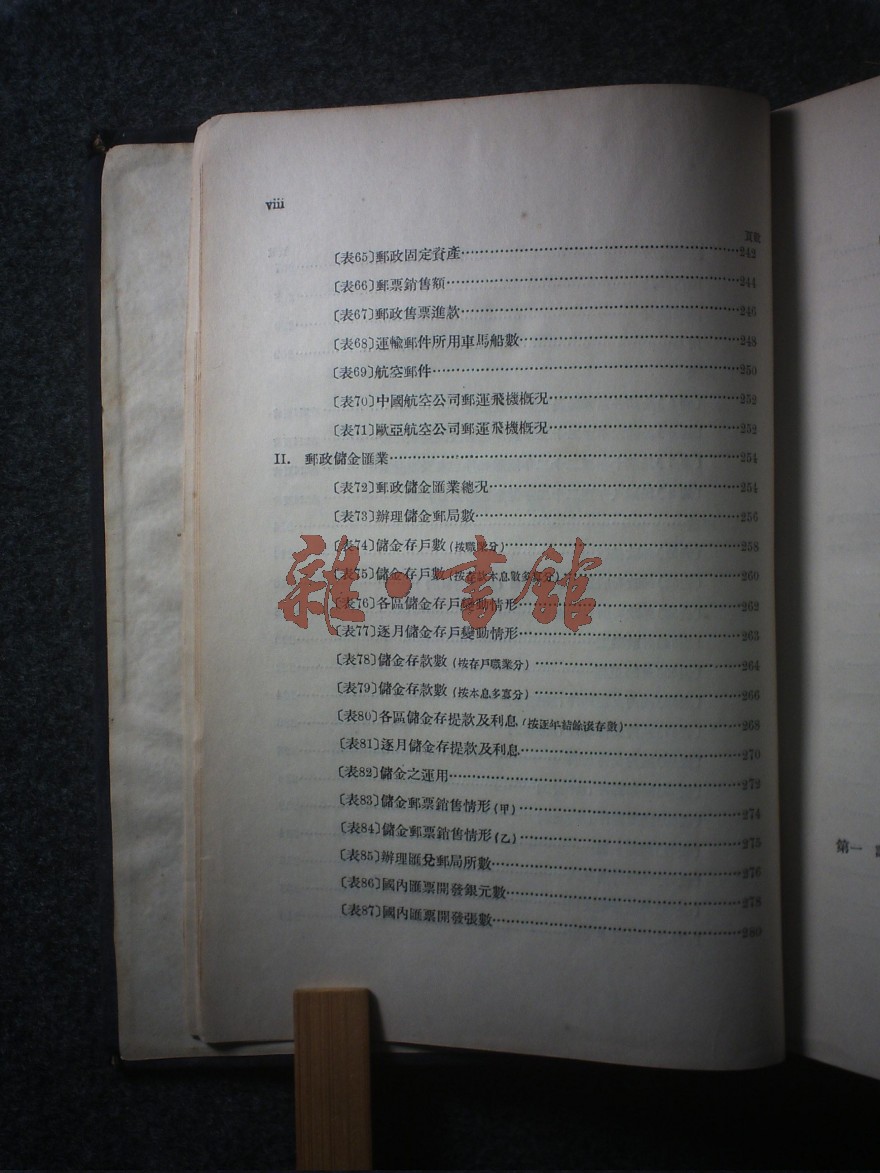 viii
頁數
〔表65〕郵政固定資產……242
〔表66〕郵票銷售額……244
〔表67〕郵政售票進款……246
〔表68〕運輸郵件所用車馬船數……248
〔表69〕航空郵件……250
〔表70〕中國航空公司郵運飛機槪況……252
〔表71〕歐亞航空公司郵運飛機槪況……252
II. 郵政儲金匯業……254
〔表72〕郵政儲金匯業總況……254
〔表73〕辦理儲金郵局數……256
〔表74〕儲金存戶數(按職業分)……258
〔表75〕儲金存戶數(按存款本息數多寡分)……260
〔表76〕各區儲金存戶變動情形……262
〔表77〕逐月儲金存戶變動情形……263
〔表78〕儲金存款數(按存戶職業分)……264
〔表79〕儲金存款數(按本息多寡分)……266
〔表80〕各區儲金存提款及利息(按逐年結餘滾存數)……268
〔表81〕逐月儲金存提款及利息……270
〔表82〕儲金之運用……272
〔表83〕儲金郵票銷售情形(甲)……274
〔表84〕儲金郵票銷售情形(乙)……275
〔表85〕辦理匯兌郵局所數……276
〔表86〕國內匯票開發銀元數……278
〔表87〕國內匯票開發張數……280
雜·書館
第一